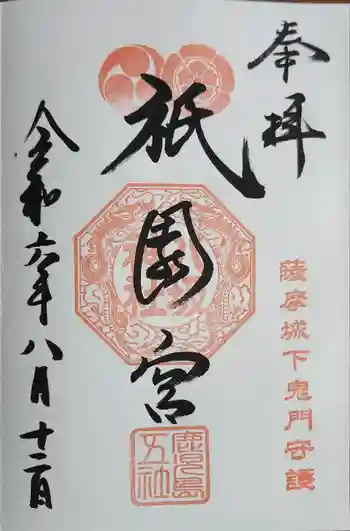 奉拝
薩摩城下鬼門守護
祇園宮
鹿児島
五社
令和六年八月十二日